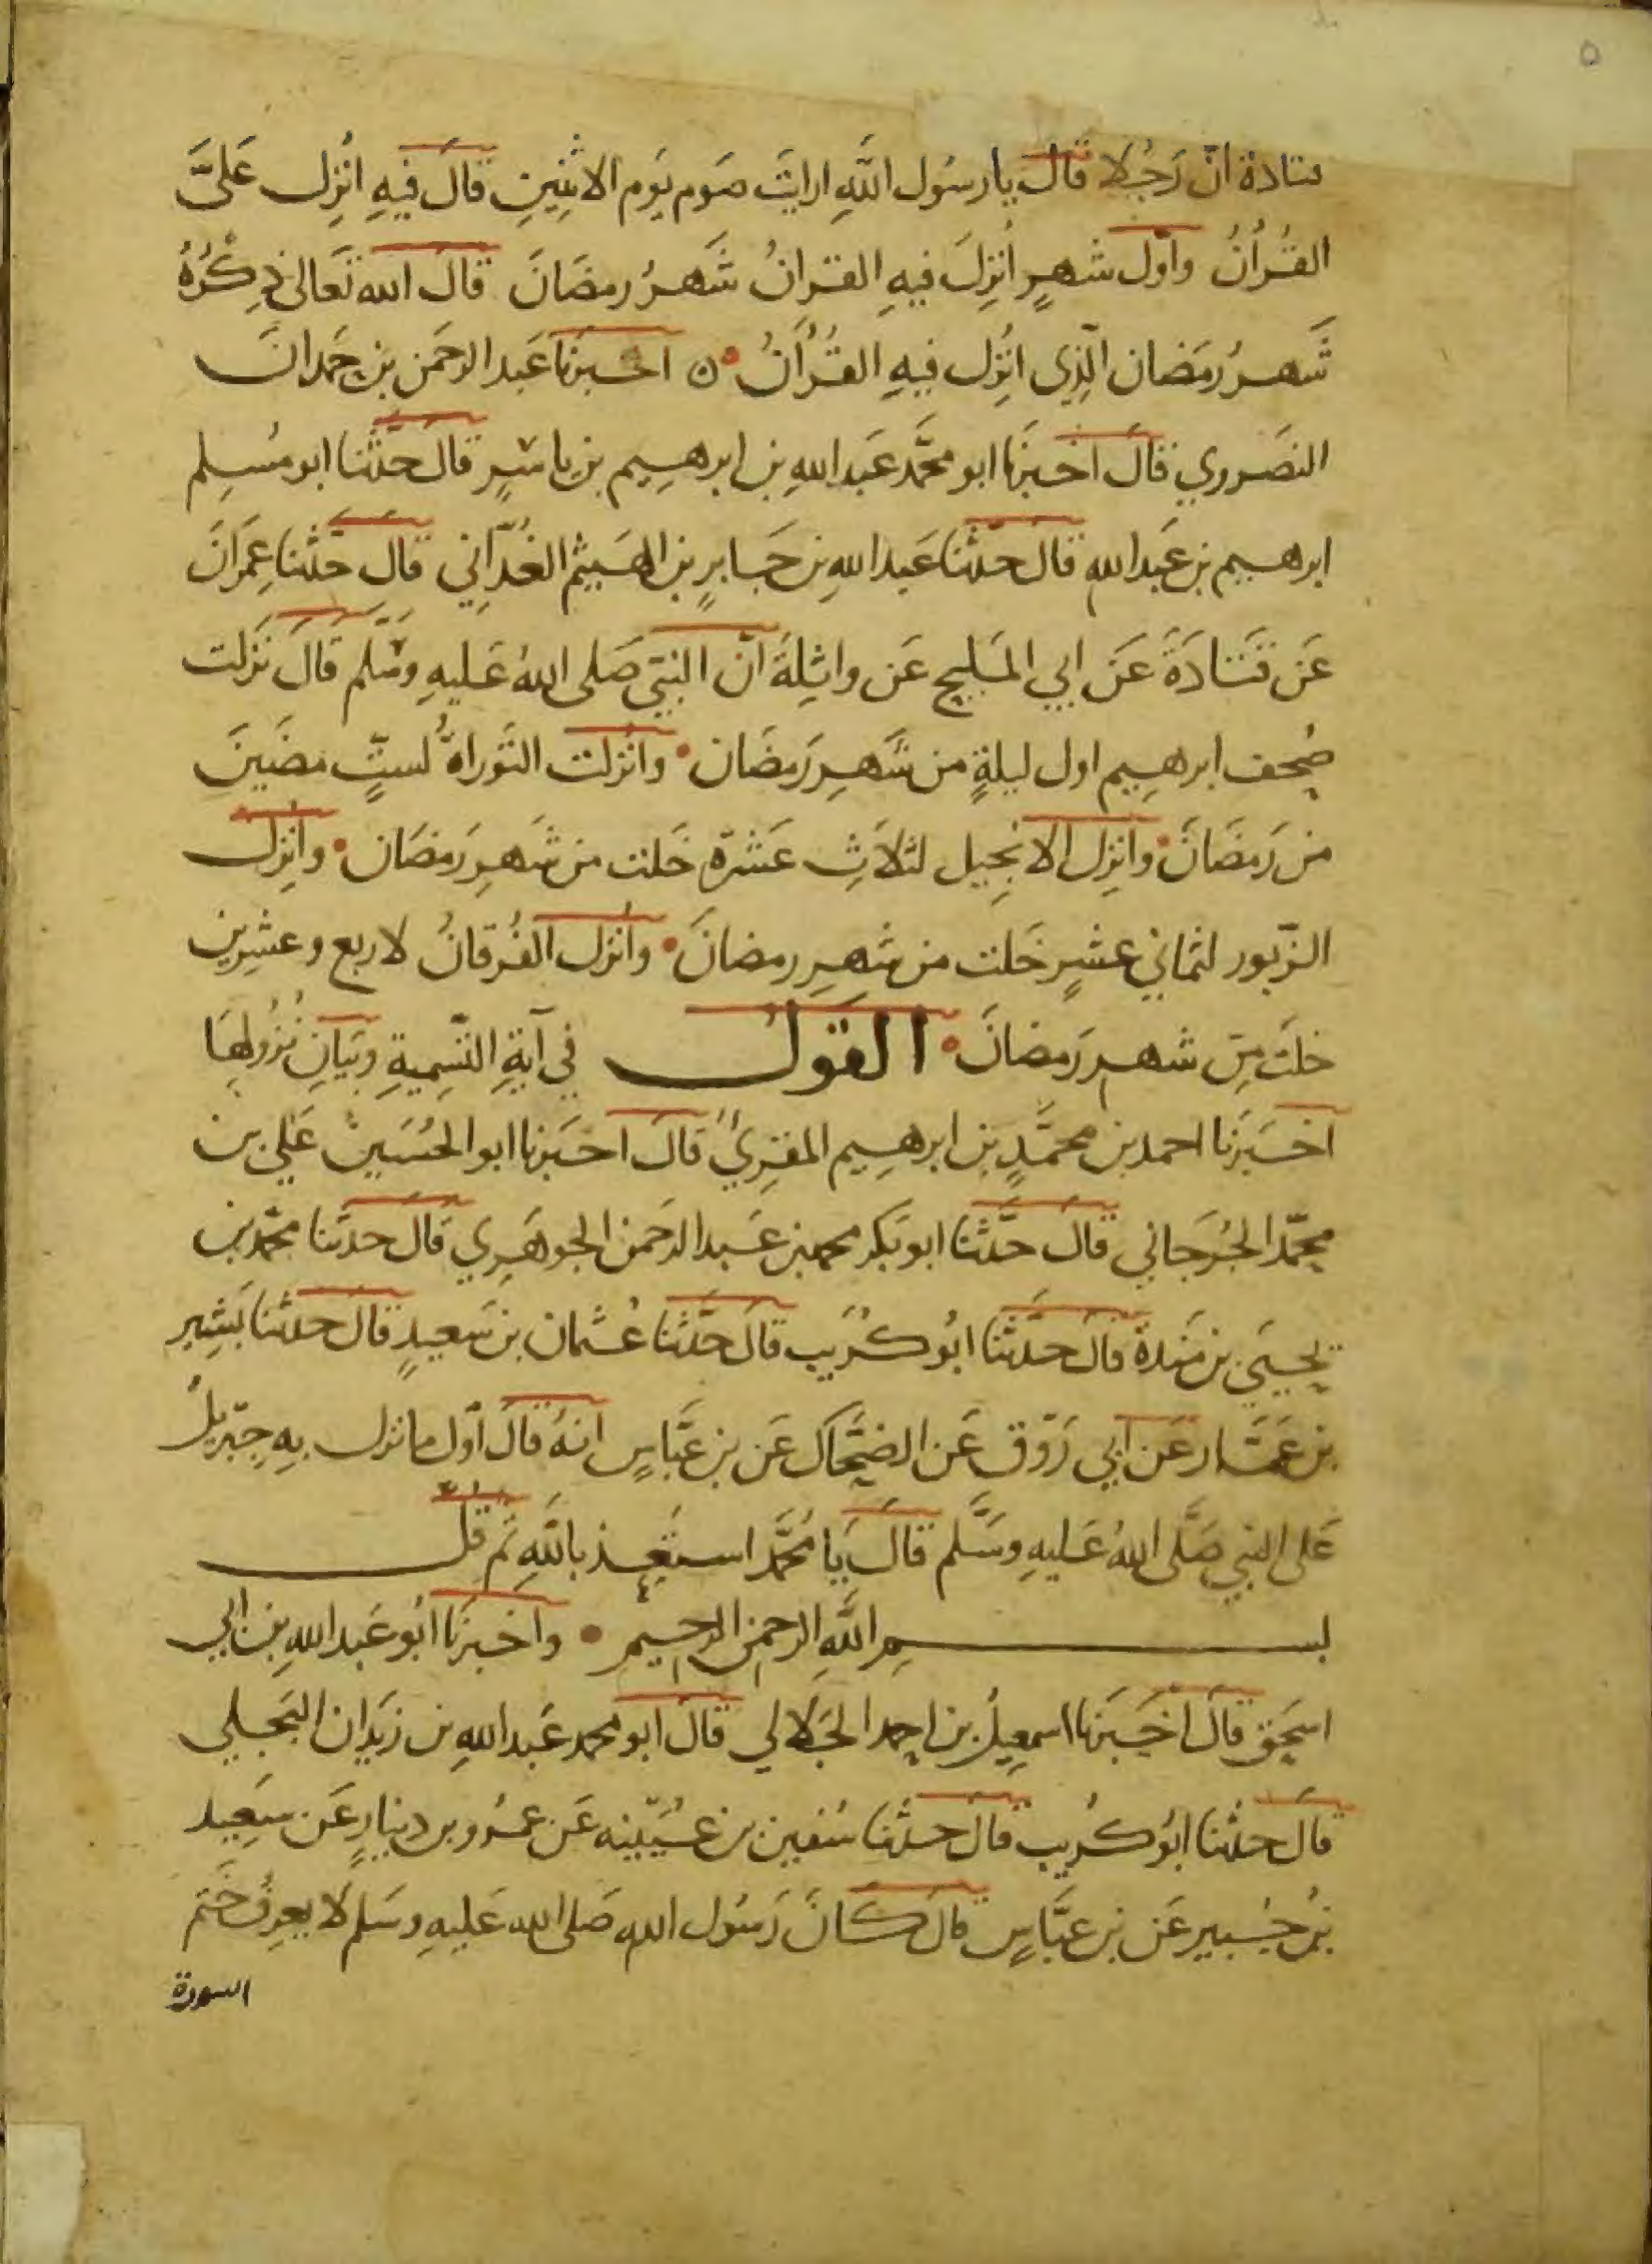 ٥
قتادة انّ رَجُلا قال يا رسُول اللهِ ارايتَ صَوم يَوم الاثنِينِ قالَ فيهِ انُزِل عَلىَّ
القُرُاٰنُ واوّل شهرٍ اُنزِلَ فيهِ القراٰنُ شَهرُ رمضَانَ قالَ الله تَعالىٰ ذِكْرُهُ
شَهرُ رمَضان الّذِى انُزِل فيهِ القُرُاٰنُ ۞ اخبَرنا عَبد الرحَمن بن حَمدانَ
النصَروي قالَ اخبَرنَا ابو محمَّد عَبد اللهِ بن ابرهيم بن ماسٍٍ قالَ حَدّثنا ابو مسُلِم
ابرهيم بن عَبد اللهِ قالَ حدّثنا عَبد اللهِ بن حَابرٍ بن الهيَثم الغُدّاني قالَ حدّثنا عِمَرانَ
عَن قتَادَةَ عَن ابي المَليحِ عَن واثِلةَ انّ النبيّ صَلى اللهُ عَليهِ وسَلّم قَالَ نَزلت
صُحف ابرهِيم اول ليلةٍ من شَهرِ رَمضَان • وانُزلت التَوراةُ لستٍّ مضَينَ
من رَمضَانَ • وانزِل الانجِيل لثلاَثِ عَشرة خَلت من شَهرِ رَمضَان • وانُزِل
الزّبور لثماني عشرٍ خَلت من شهرِ رمضانَ • واُنزل الفُرقانُ لاربع وعشِرين
خلَت مِن شهرِ رَمضانَ • القول في آيَةِ التّسِميةِ وبَيانِ نُزُولِهَا
اخبَرنَا احمد بن محمَّدٍ بن ابرهِيم المقرِئُ قالَ اخبَرنا ابو الحسُينْ عَلي بن
محمّد الجُرجَاني قالَ حدّثنا ابو بَكر محمد بن عَبد الرحَمن الجوهَرِي قالَ حدثنا محمّد بن
يحيىَ بن مَندة قالَ حَدّثنَا ابُو كُرَيب قالَ حَدّثنا عُثمان بن سَعيدٍ قالَ حدثنا بَشِير
بن عَمّار عَن ابي رَوْق عَن الضحَّاك عَن بن عَبّاسٍ انهُ قالَ اوّل ما نزل بهِ جِبّريلُ
عَلى النبي صَلّى اللهُ عَليهِ وسَلَّم قالَ يَا مُحمَّد استَعِذ باللهِ ثمّ قُل
بسمِ اللهِ الرحمنِ الرحيمِ • واخبرنَا ابُو عَبد اللهِ بن ابي
اسحَق قالَ اخَبَرنا اسمعِيلُ بن احمد الجَلالي قالَ ابو محمد عَبد اللهِ بن زيَدان البَجلي
قالَ حدثنا ابُو كُريب قالَ حدثنا سُفين بن عُيَيّنه عَن عمرُو بن دينارٍ عَن سعِيد
بنُ جُبيرٍ عَن بن عبّاسٍ قالَ كانَ رَسُول اللهِ صَلى الله عَليهِ وسَلم لَا يعرِفُ خَتم
السورة